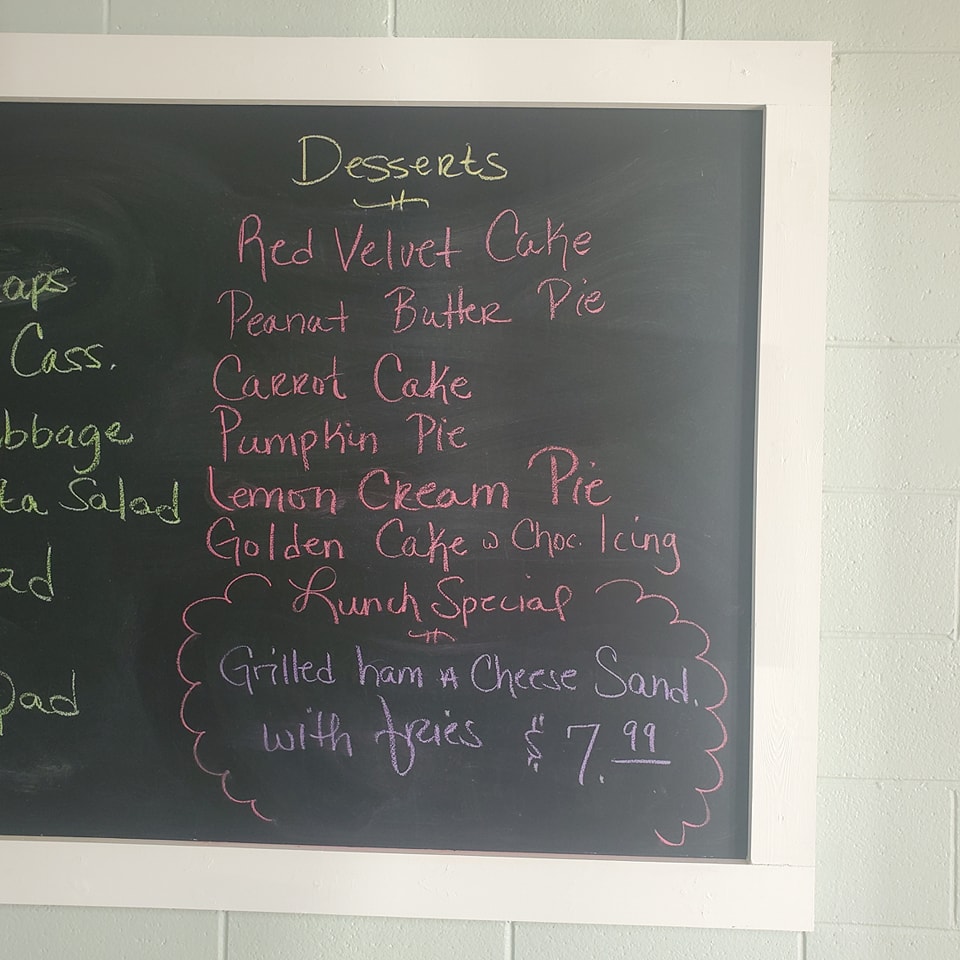 Desserts
Red Velvet Cake
Peanut Butter Pie
Carrot Cake
Pumpkin Pie
Lemon Cream Pie
Golden Cake w Choc. Icing
Lunch Special
Grilled ham & Cheese Sand.
with fries $7.99
aps
Cass.
bbage
ta Salad
ad